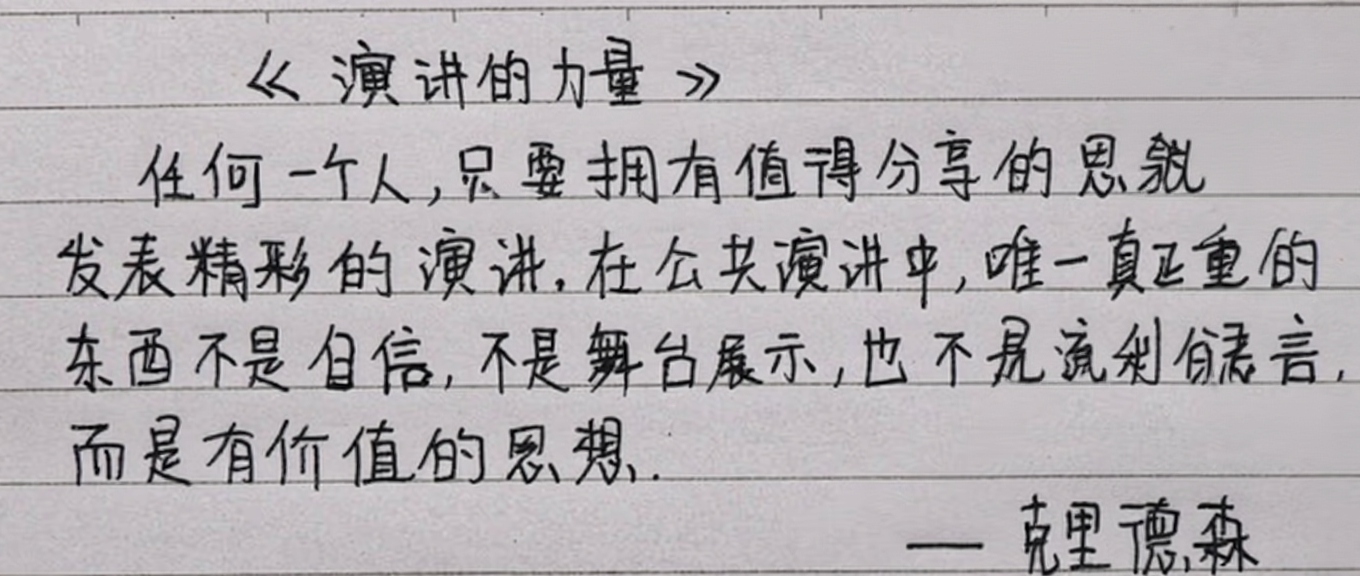 《演讲的力量》
任何一个人,只要拥有值得分享的思
发表精彩的演讲.在公共演讲中,唯一真正重的
东西不是自信,不是舞台展示,也不是流利言,
而是有价值的思想.
— 克里德森